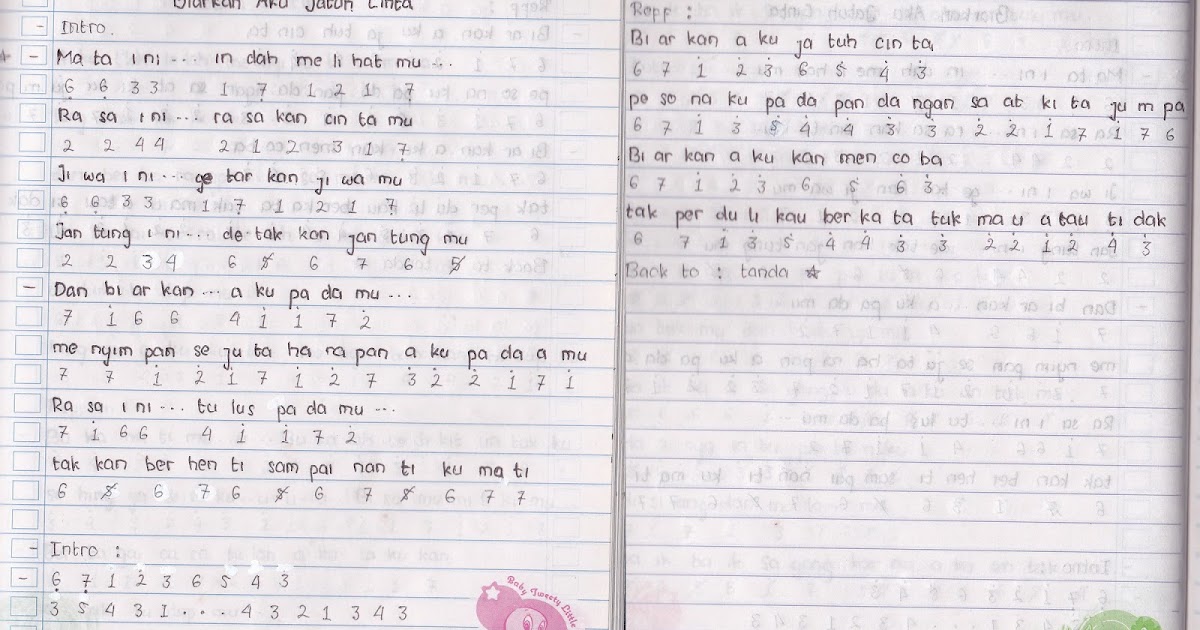 Biarkan Aku Jatuh Cinta
- Intro.
- Ma ta i ni ... in dah me li hat mu ...
6 6 3 3 1 7 1 2 1 7
Ra sa i ni ... ra sa kan cin ta mu
2 2 4 4 2 1 2 3 1 7
Ji wa i ni ... ge tar kan ji wa mu
6 6 3 3 1 7 1 2 1 7
Jan tung i ni ... de tak kan jan tung mu
2 2 3 4 6 5 6 7 6 5
- Dan bi ar kan ... a ku pa da mu ...
7 1 6 6 4 1 1 7 2
me nyim pan se ju ta ha ra pan a ku pa da a mu
7 7 1 2 1 7 1 2 7 3 2 2 1 7 1
Ra sa i ni ... tu lus pa da mu ...
7 1 6 6 4 1 1 7 2
tak kan ber hen ti sam pai nan ti ku ma ti
6 5 6 7 6 5 6 7 5 6 7 7
- Intro :
- 6 7 1 2 3 6 5 4 3
3 5 4 3 1 . . . 4 3 2 1 3 4 3
Baby Tweety Little
Repp :
Bi ar kan a ku ja tuh cin ta
6 7 1 2 3 6 5 4 3
pe so na ku pa da pan da ngan sa at ki ta ju m pa
6 7 1 3 5 4 4 3 3 2 2 1 7 1 7 6
Bi ar kan a ku kan men co ba
6 7 1 2 3 6 5 6 3
tak per du li kau ber ka ta tuk ma u a tau ti dak
6 7 1 3 5 4 4 3 3 2 2 1 2 4 3
Back to : tanda ☆